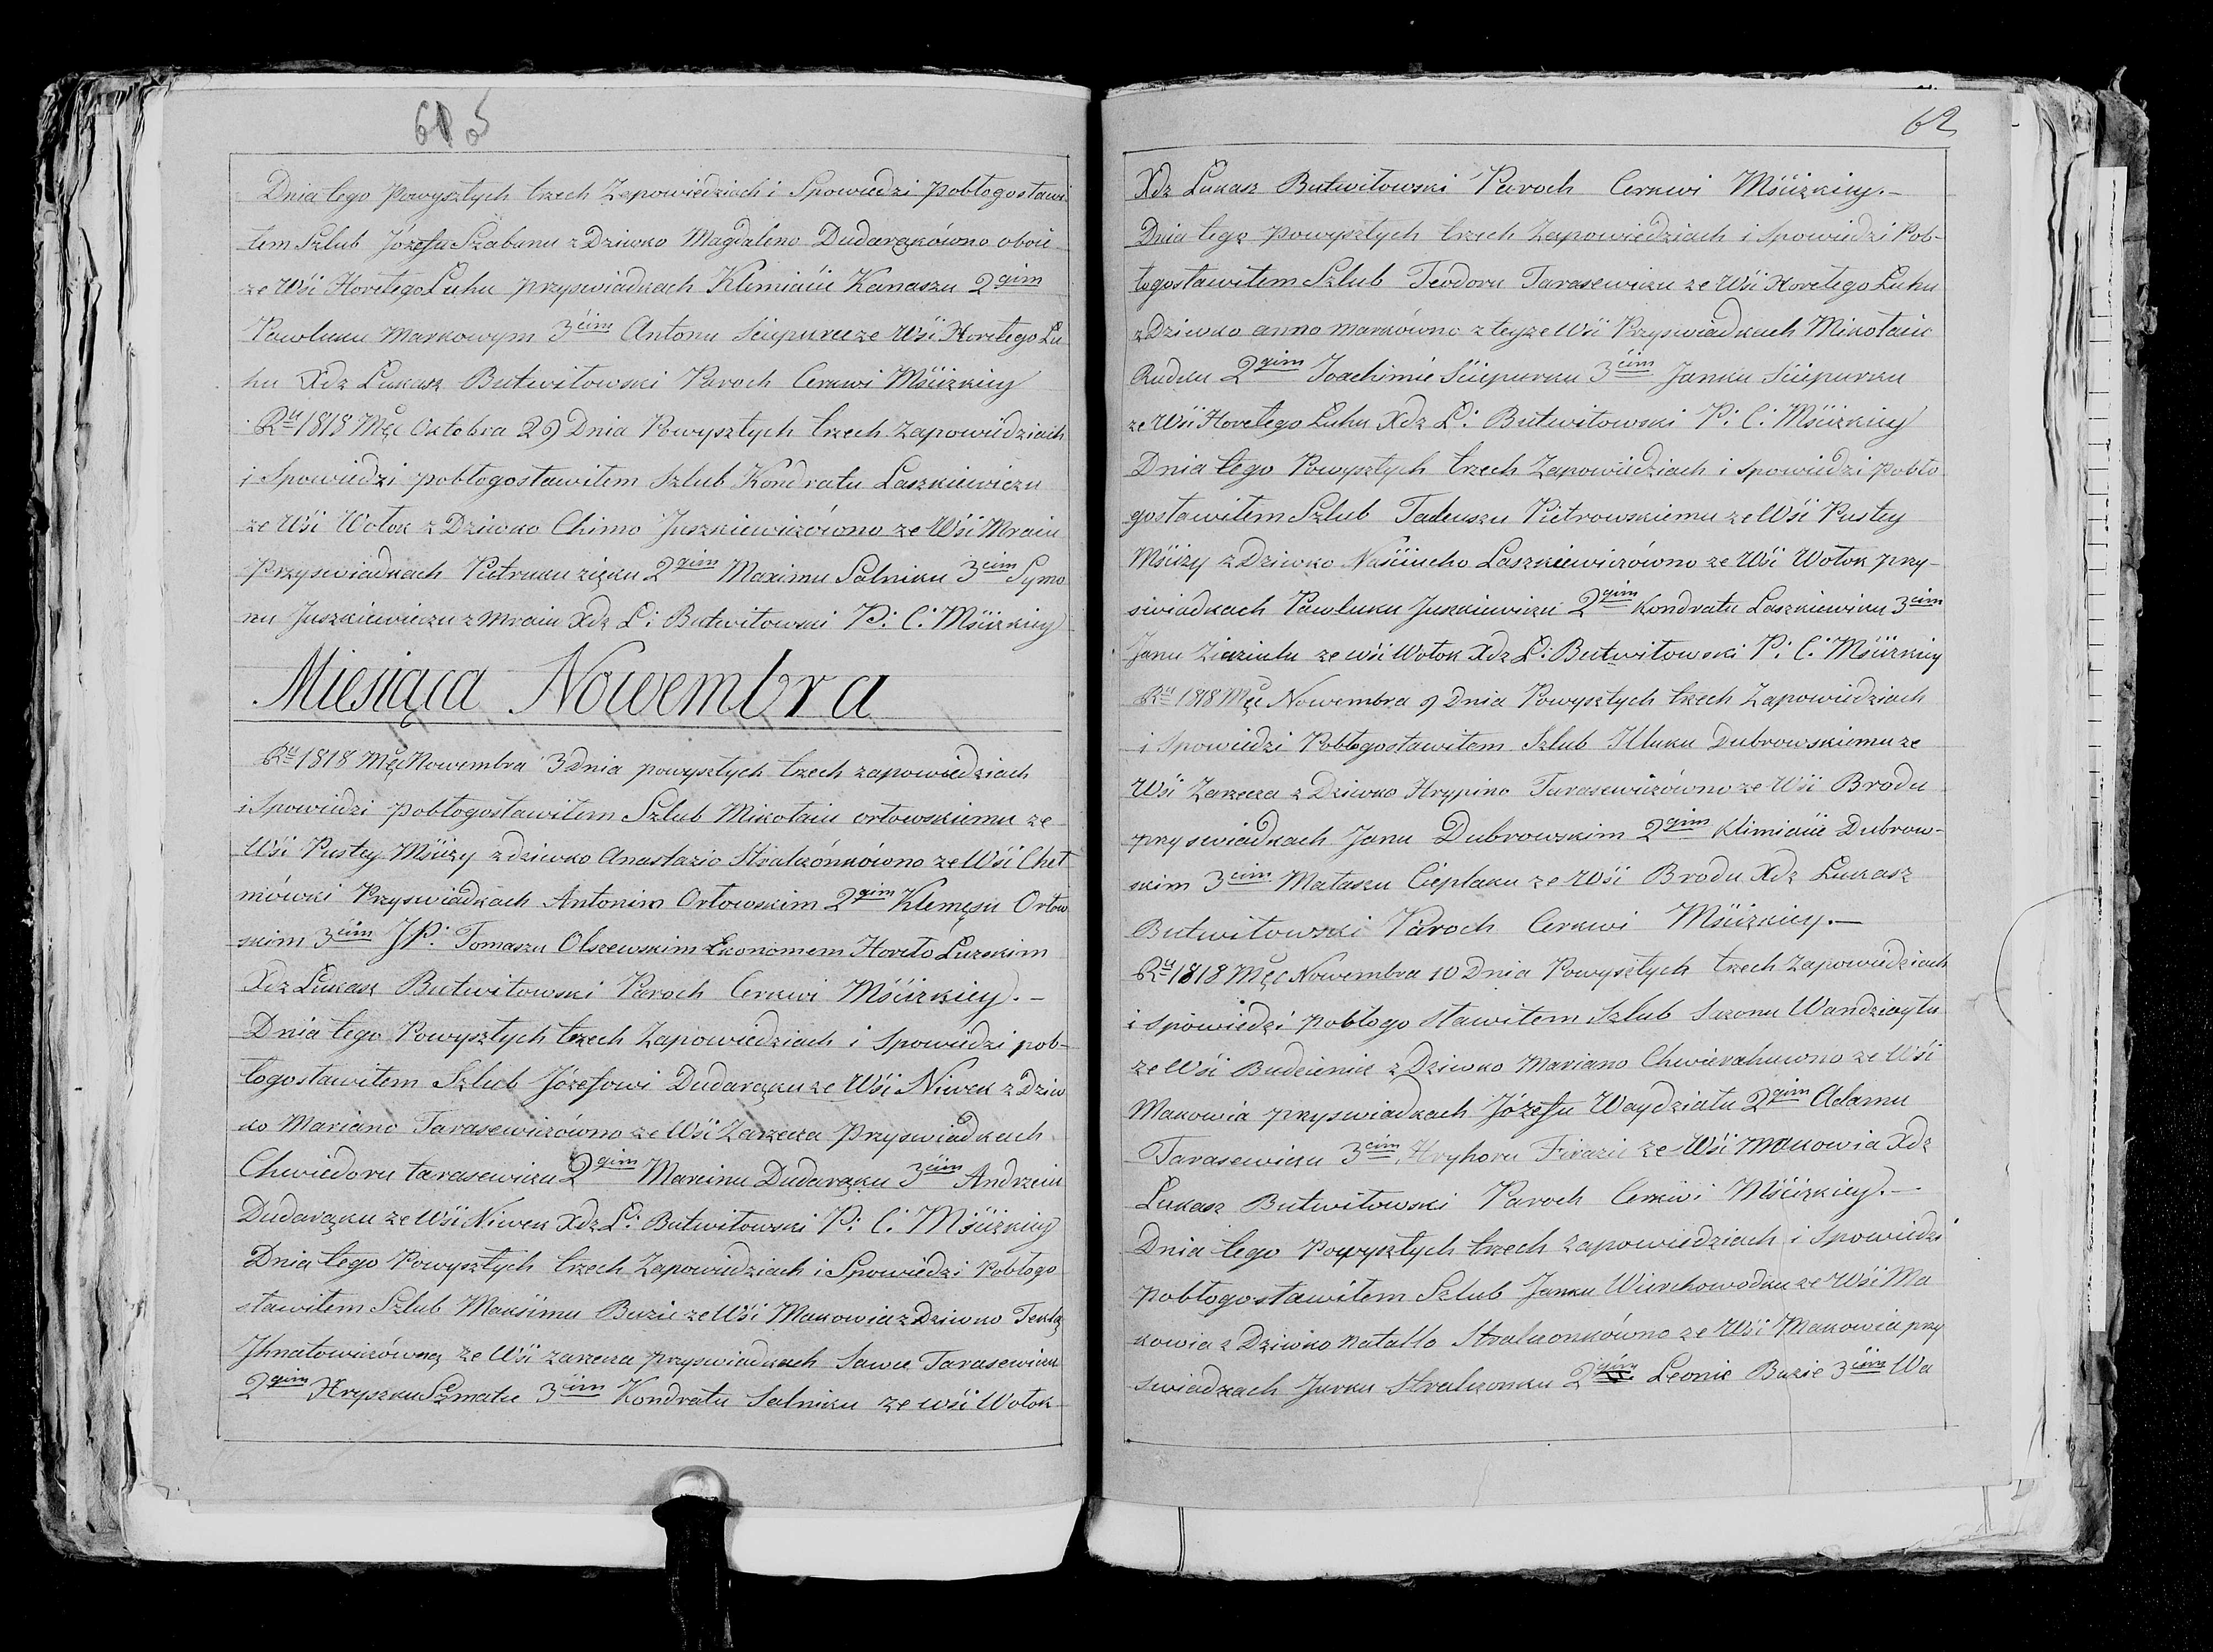 615
Dnia tego Powyszłych trzech Zapowiedziach i Spowiedzi pobłogosławi
łem Szlub Józefu Szabunu z Dziwko Magdaleno Dudarąkówno oboie
ze Wśi Horełego Łuhu przyswiadkach Klimiaüi Kanaszu 2gim
Pawluku Markowym 3ćim Antonu Sciepurce ze Wśi Horełego Łu
hu Xdz Łukasz Butwiłowski Paroch Cerkwi Mśćizkiey
Ru 1818 Męc Oktobra 29 Dnia Powyszłych trzech Zapowiedziach
i Spowiedzi pobłogosławiłem Szlub Kondratu Laszkiewiczu
ze Wśi Wołok z Dziwko Chimo Juszkiewiczówno ze Wśi Mraiu
Przyswiadkach Pietruku zięciu 2gim Maximu Salniku 3cim Symo
nu Juszkiewiczu z Mraiu Xdz Ł: Butwiłowski P: C: Mśćizkiey
Miesiąca Nowembra
Ru 1818 Męc Nowembra 3 Dnia powyszłych trzech zapowiedziach
i Spowiedzi pobłogosławiłem Szlub Mikołaiu orłowskiemu ze
Wśi Pustey Mśćizy z dziwko Anastazio Stralczónkówno ze Wśi Cheł
mówki Przyswiadkach Antonim Orłowskim 2gim Klemęsu Orłow
skim 3cim JP: Tomaszu Olszewskim Ekonomem Horeło Łuzskim
Xdz Łukasz Butwiłowski Paroch Cerkwi Mśćizkiey.-
Dnia tego Powyszłych trzech Zapowiedziach i Spowiedzi pob-
łogosławiłem Szlub Józefowi Dudarąku ze Wśi Niwek z Dziw
ko Mariano Tarasewiczówno ze Wśi Zarzecza Przyswiadkach
Chwiedoru tarasewiczu 2gim Marcinu Dudarąku 3ćim Andrzeiu
Dudarąku ze Wśi Niwek Xdz Ł: Butwiłowski P: C: Mśćizkiey
Dnia tego Powyszłych trzech Zapowiedziach i Spowiedzi Pobłogo
sławiłem Szlub Maksimu Buzie ze Wśi Makowia z Dziwko Teklą
Jhnatowiczówną ze Wśi zarzecza przyswiadkach Sawie Tarasewiczu
2gim Hryszku Szmatu 3ćim Kondratu Salniku ze wśi Wołok
62
Xdz Łukasz Butwiłowski Paroch Cerkwi Mśćizkiey.-
Dnia tego powyszłych trzech Zapowiedziach i Spowiedzi Pob-
łogosławiłem Szlub Teodoru Tarasewiczu ze Wśi Horełego Łuhu
z Dziwko anno markówno z teyze Wśi Przyswiadkach Mikołaiu
Rudku 2gim Joachimie Sciepurku 3ćim Janku Sciepurku
ze Wśi Horełego Łuhu Xdz Ł: Butwiłowski P: C: Mśćizkiey
Dnia tego Powyszłych trzech Zapowiedziach i spowiedzi pobło
gosławiłem Szlub Tadeuszu Pietrowskiemu ze Wśi Pustey
Mśćizy z Dziwko Naśćiucho Laszkiewiczówno ze Wśi Wołok przy-
swiadkach Pawluku Juszkiewiczu 2gim Kondratu Laszkiewiczu 3cim
Janu Ziaziulu ze wśi Wołok Xdz Ł: Butwiłowski P: C: Mśćizkiey
Ru 1818 Męc Nowembra 9 Dnia Powyszłych trzech Zapowiedziach
i Spowiedzi Pobłogosławiłem Szlub Illuku Dubrowskiemu ze
Wśi Zarzecza z Dziwko Hrypino Tarasewiczówno ze Wśi Brodu
przyswiadkach Janu Dubrowskim 2gim Klimiaüi Dubrow-
skim 3cim Mataszu Cieplaku ze Wśi Brodu Xdz Łukasz
Butwiłowski Paroch Cerkwi Mśćizkiey.-
Ru 1818 Męc Nowembra 10 Dnia Powyszłych trzech Zapowiedziach
i spowiedzi pobłogo sławiłem Szlub Sazonu Wandziaytu
ze Wśi Budzienic z Dziwko Mariano Chwierahuwno ze Wśi
Makowia przyswiadkach Józefu Waydziatu 2gim Adamu
Tarasewiczu 3cim Hryhoru Firazie ze Wśi makowia Xdz
Łukasz Butwiłowski Paroch Cerkwi Mśćizkiey.-
Dnia tego Powyszłych trzech zapowiedziach i Spowiedzi
pobłogosławiłem Szlub Janku Wierchowodku ze Wśi Ma
kowia z Dziwko natallo Stralczonkówno ze Wśi Makowia przy
swiadkach Jurku Stralczonku 2gim Leonie Buzie 3ćim Wa